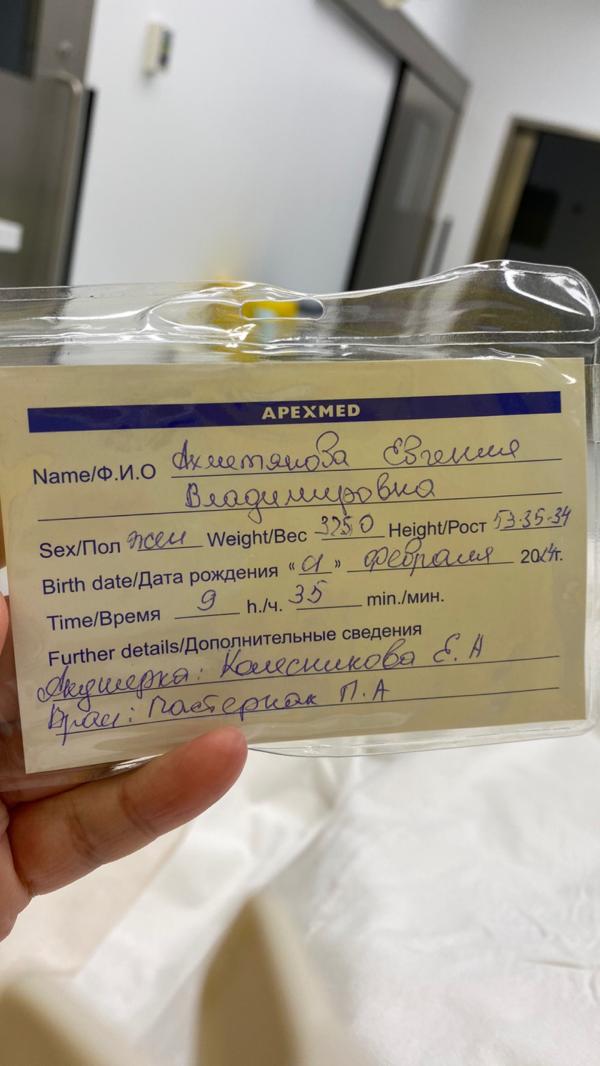 APEXMED
Name/Ф.И.О Ахметянова Евгения
Владимировна
Sex/Пол жен Weight/Вес 3250 Height/Рост 53-35-34
Birth date/Дата рождения « » февраля 2024г.
Time/Время 9 h./ч. 35 min./мин.
Further details/Дополнительные сведения
Акушерка: Колесникова Е.А
Врач: Пастернак П.А